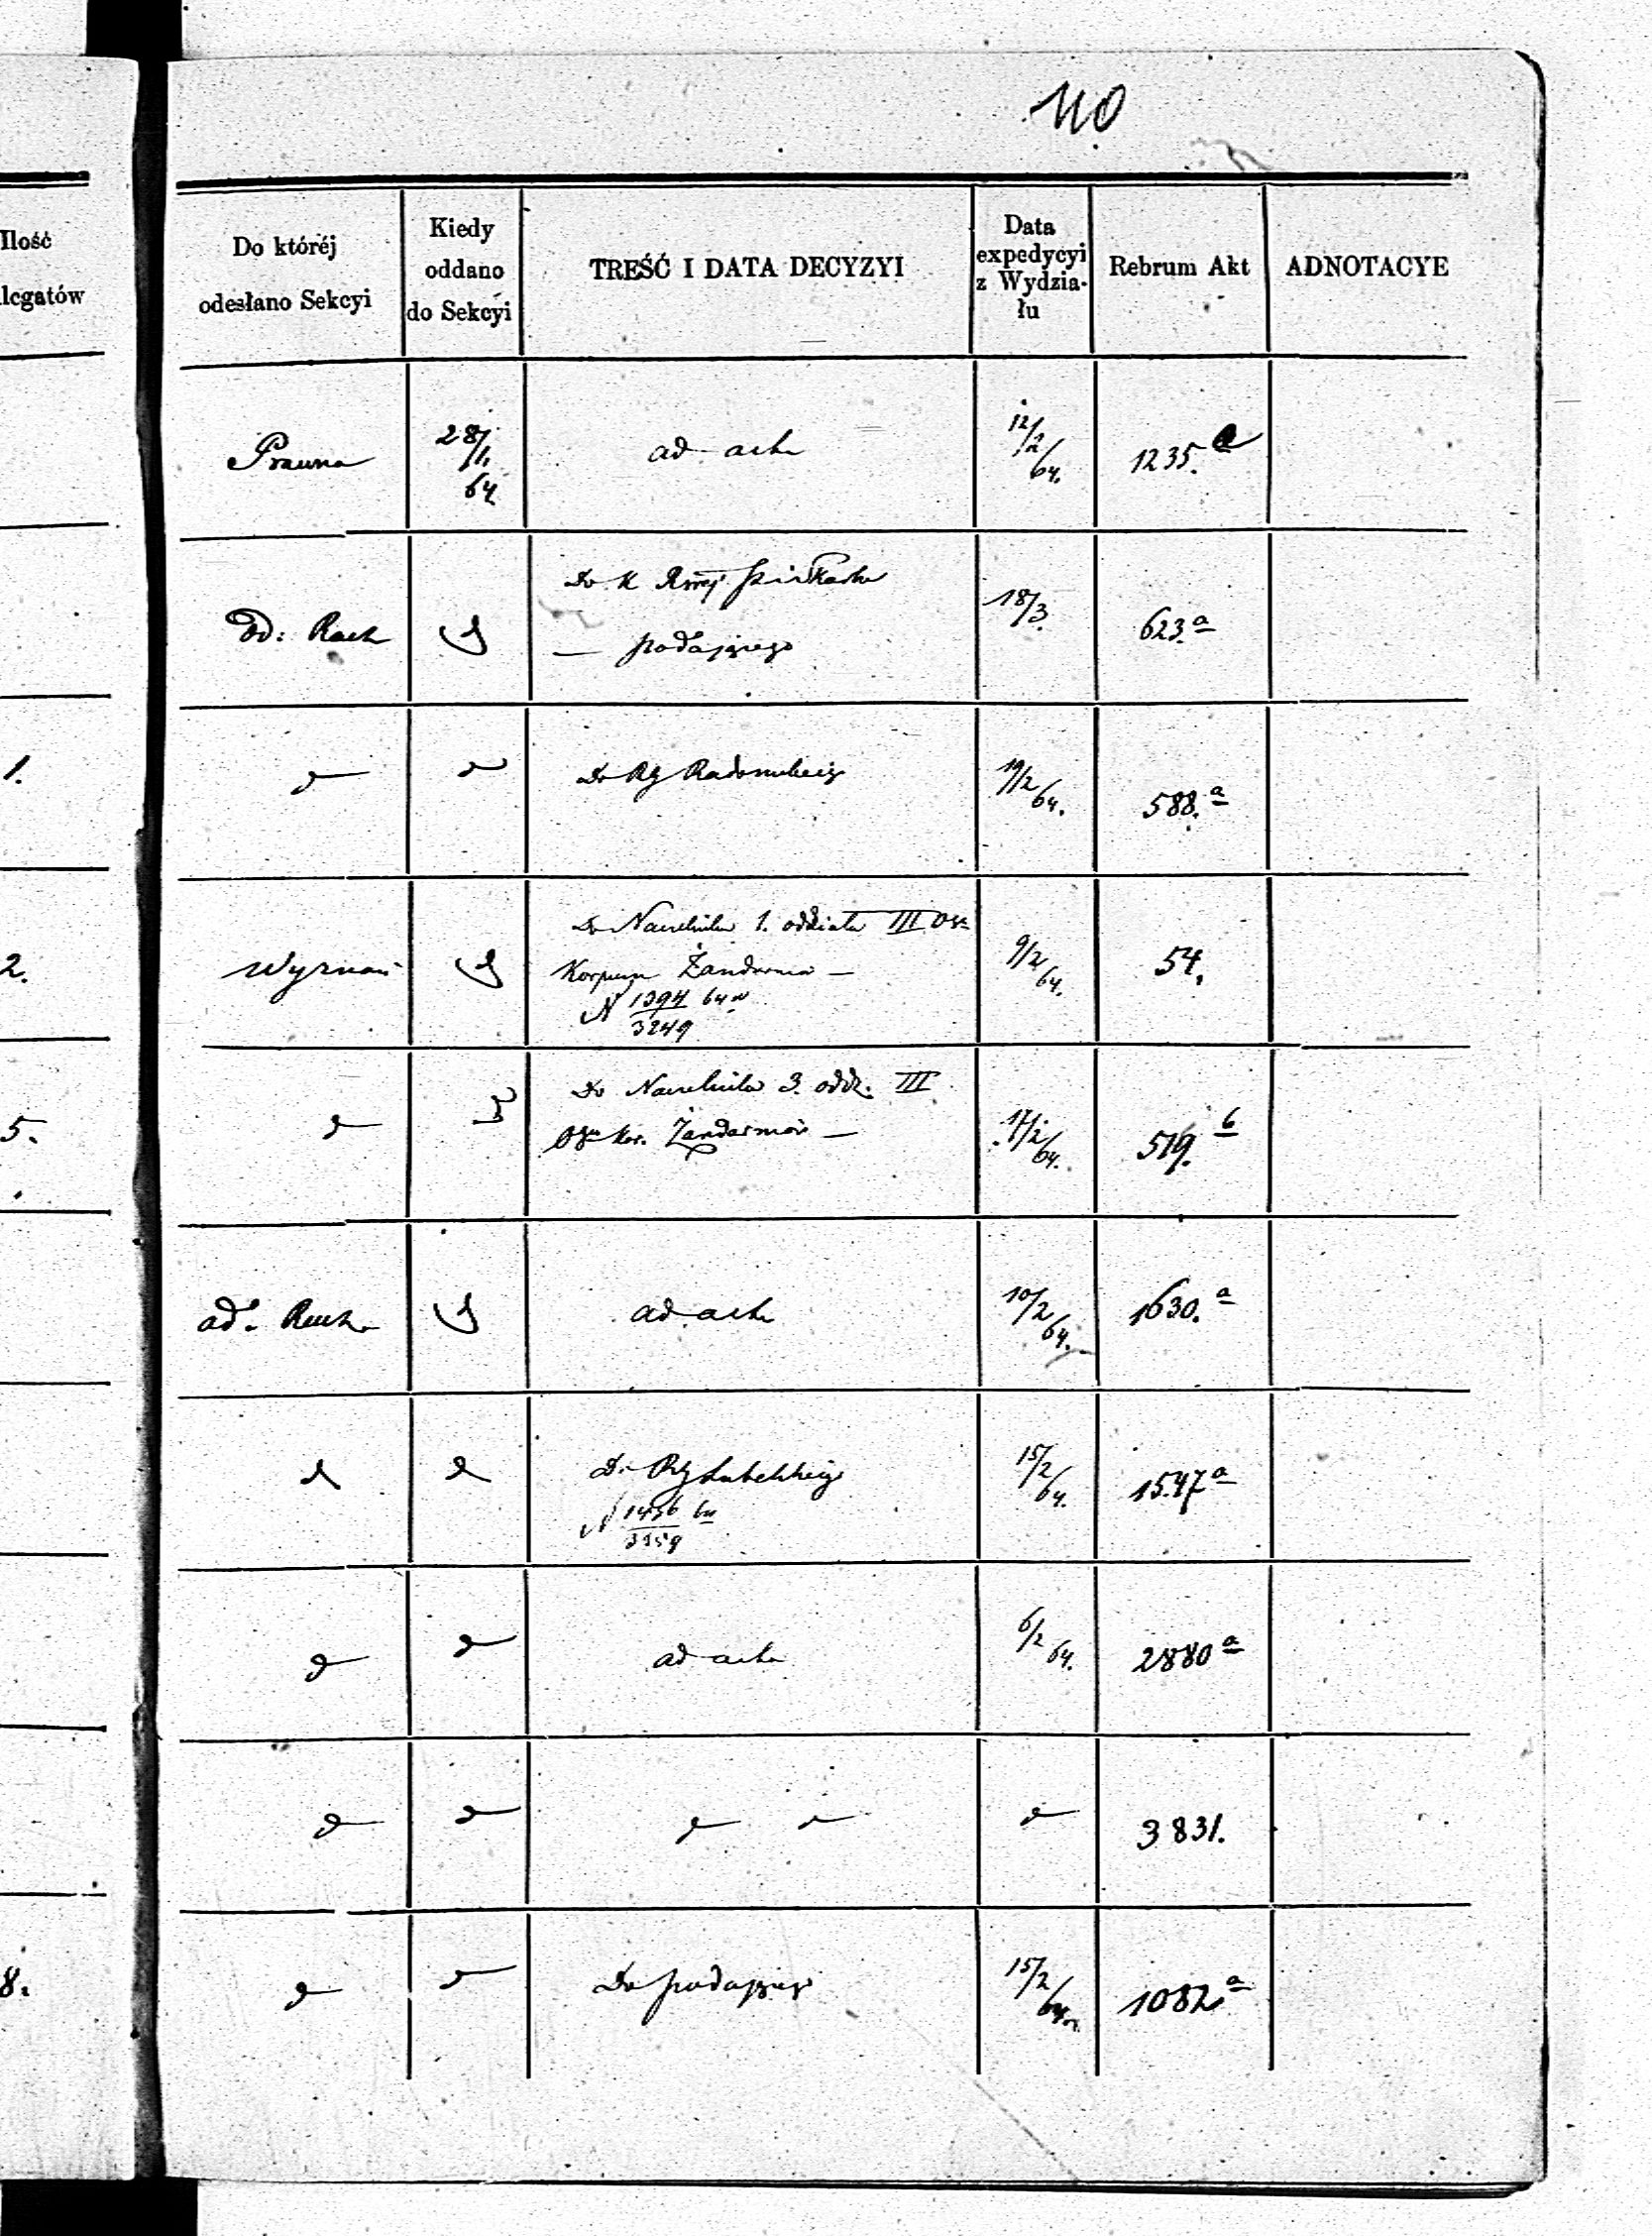 110
Ilość
alegatów
Do któréj
odesłano Sekcyi
Kiedy
oddano
do Sekcyi
TREŚĆ I DATA DECYZYI
Data
expedycyi
z Wydzia-
łu
Rebrum Akt
ADNOTACYE
Prawna
28/1.
64
ad acta
12/2
64.
1235.
Do K
podającego
Od: Rach
18/3.
623.a
1.
Do RG Radomskiego
19/2
64.
588.a
2.
Wyznań
Do Naczelnika 1. oddziału III Ogu
Korpusu Żandarmów —
N 1394
3249
9/2
64.
54.
5.
Do Naczelnika 3. oddz. III
Kor. Żandarmów —
17/2
64.
519. b
ad. Rach.
ad acta
10/2
64.
1630.a
Do RG Lubelskiego
N 1456
3359
15/2
64.
1547a
ad acta
6/2
64.
2880a
3831.
8.
Do podającego
15/2
64.
1082a